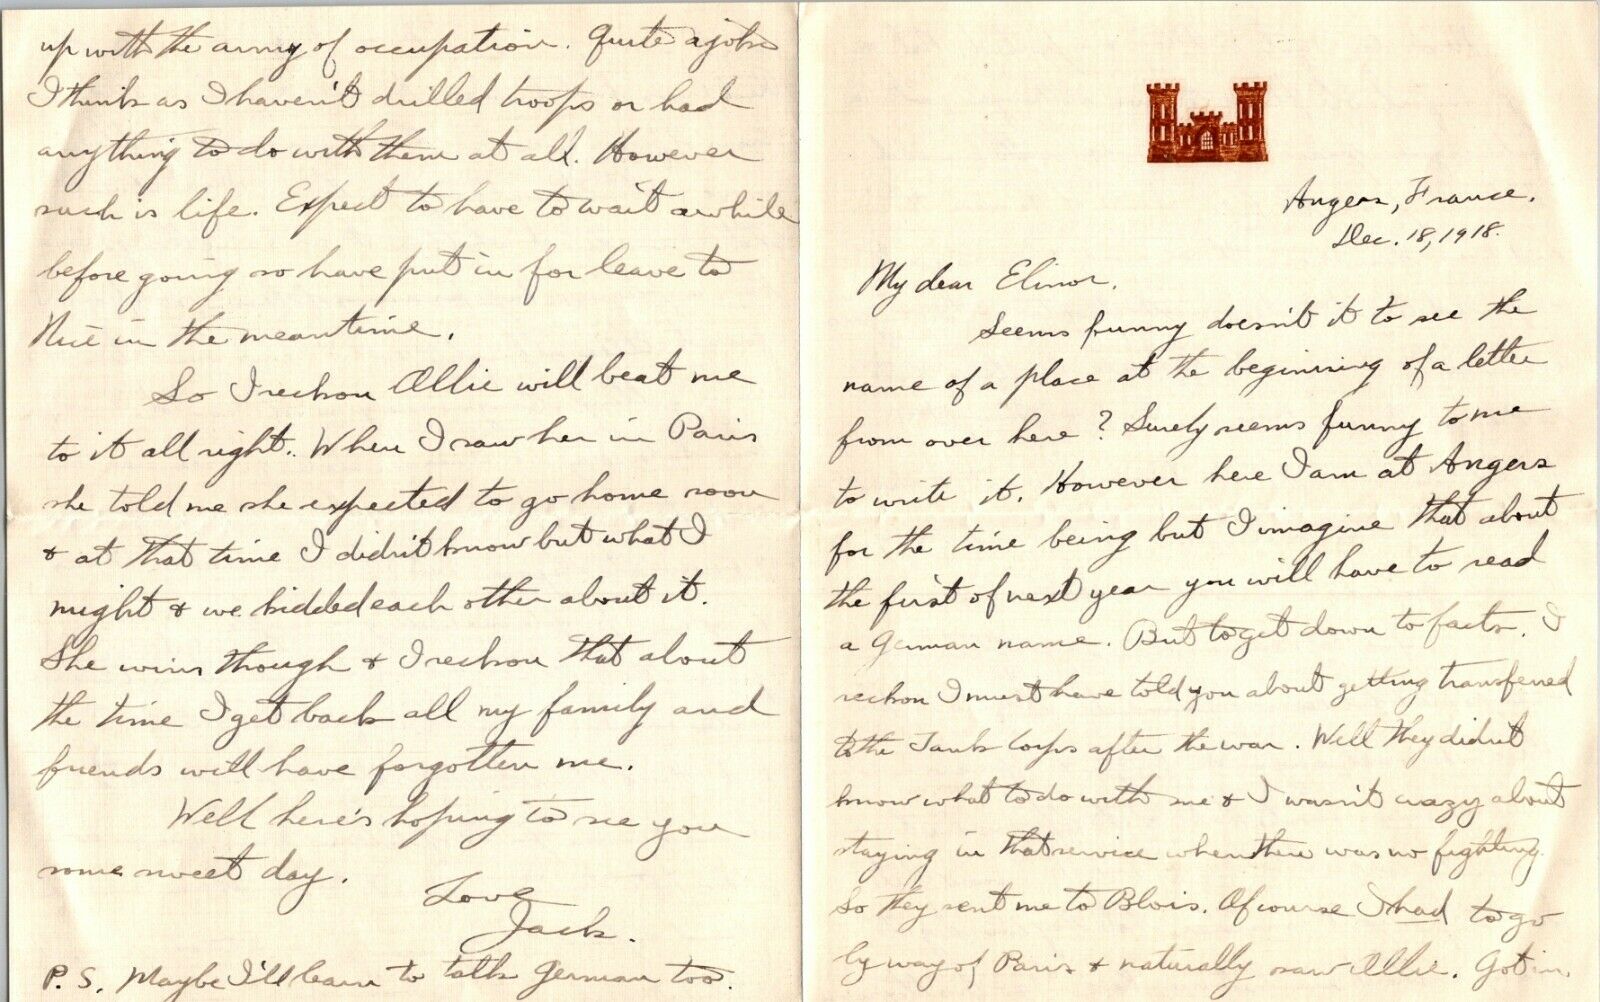 Angers, France.
Dec. 18, 1918.
My dear Elinor.
Seems funny doesn't it to see the
name of a place at the beginning of a letter
from over here? Surely seems funny to me
to write it. However here I am at Angers
for the time being but I imagine that about
the first of next year you will have to read
a German name. But to get down to facts. I
reckon I must have told you about getting transferred
to the Tank Corps after the war. Well they didn't
know what to do with me & I wasn't crazy about
staying in that service when there was no fighting.
So they sent me to Blois. Of course I had to go
by way of Paris & naturally saw Allie. Got in.
up with the army of occupation. Quite a job
I think as I haven't drilled troops or had
anything to do with them at all. However
such is life. Expect to have to wait awhile
before going so have put in for leave to
Nice in the meantime.
So I reckon Allie will beat me
to it all right. When I saw her in Paris
she told me she expected to go home soon
& at that time I didn't know but what I
might & we kidded each other about it.
She wins though & I reckon that about
the time I get back all my family and
friends will have forgotten me.
Well here's hoping to see you
some sweet day.
Love
Jack.
P.S. Maybe I'll learn to talk German too.